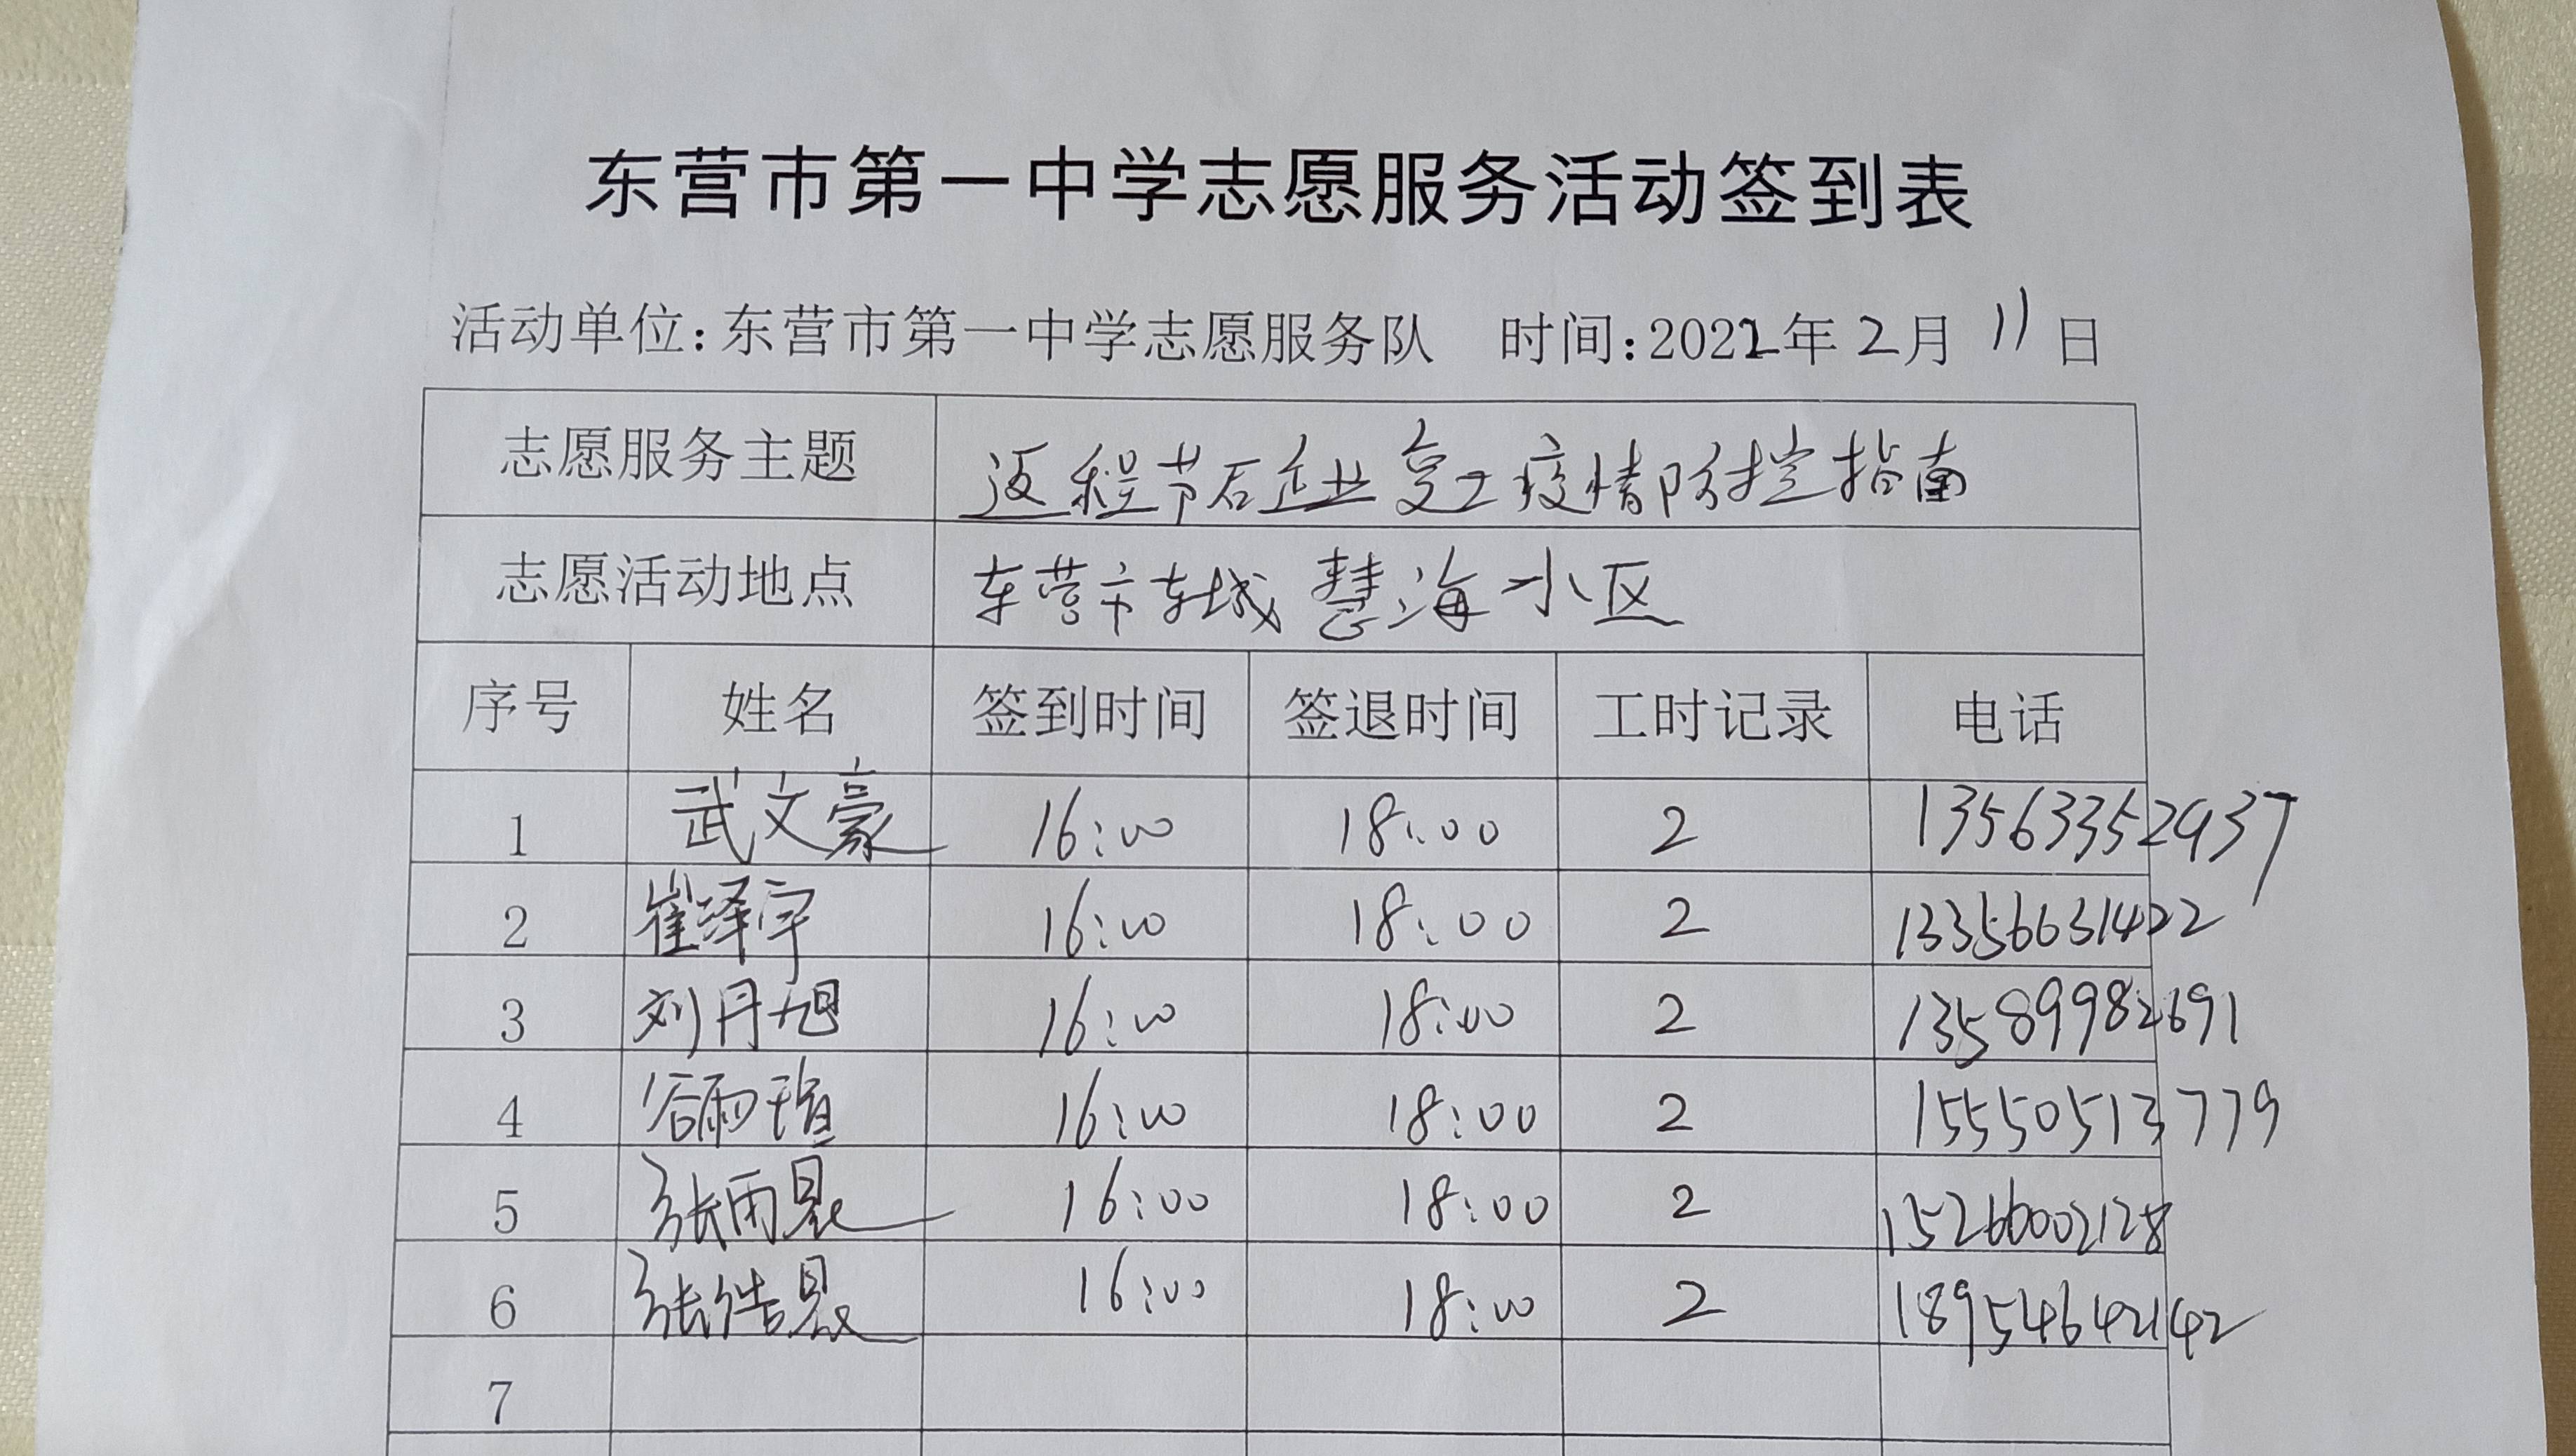 东营市第一中学志愿服务活动签到表
活动单位:东营市第一中学志愿服务队 时间:2022年2月11日
志愿服务主题 返程节后企业复工疫情防控指南
志愿活动地点 东营市东城慧海小区
序号 姓名 签到时间 签退时间 工时记录 电话
1 武文豪 16:00 18:00 2 13563352937
2 崔泽宇 16:00 18:00 2 13356631422
3 刘丹旭 16:00 18:00 2 13589982691
4 谷雨瑄 16:00 18:00 2 15550513779
5 张雨 16:00 18:00 2 15266002128
6 张浩 16:00 18:00 2 18954642142
7